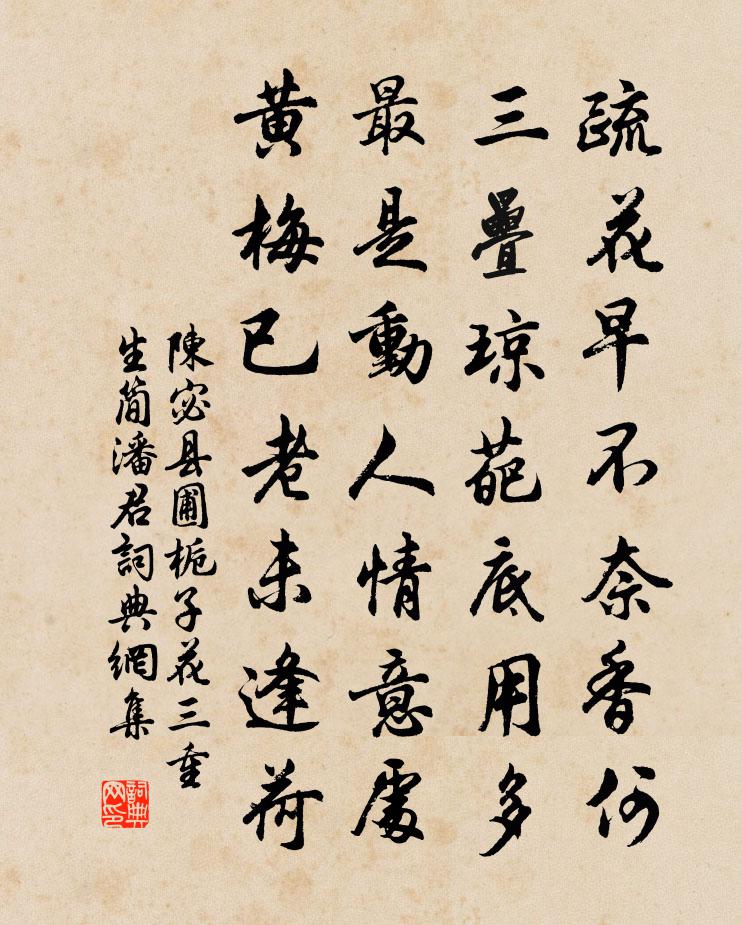 疏花早不奈香何
三疊琼葩底用多
最是動人情意處
黃梅已老未逢荷
陳宓县圃栀子花三重
生简潘君詞典網集
詞典网印